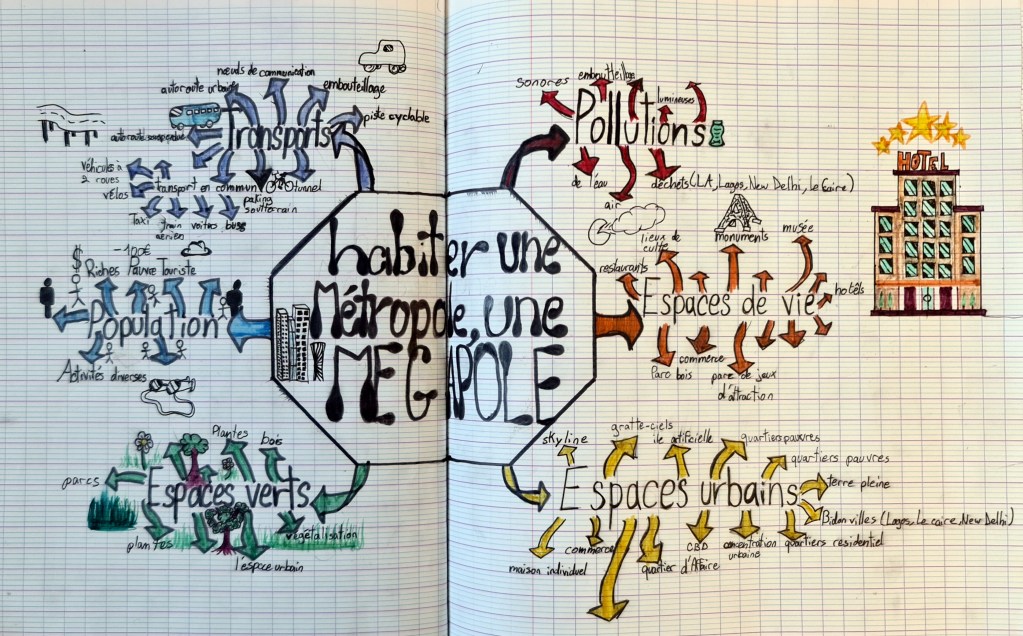 habiter une
Métropole, une
MEGAPOLE
Transports
nœuds de communication
autoroute urbaine
embouteillage
piste cyclable
véhicules à
2 roues
vélos
Taxi
train
aérien
voiture
buse
transport en commun
parking
souterrain
tunnel
Population
$
-100€
Riches
Pauvre
Touriste
Activités diverses
Espaces verts
Plantes
bois
parcs
plantes
l'espace urbain
végétalisation
Pollutions
sonores
embouteillage
lumineuses
de l'eau
air
déchets (LA, Lagos, New Delhi, le Caire)
Espaces de vie
restaurants
lieux de
culte
monuments
musée
hôtels
Parc bois
commerce
parc de jeux
d'attraction
HOTEL
Espaces urbains
skyline
gratte-ciels
ile artificielle
quartiers pauvres
quartiers pauvres
terre pleine
Bidonvilles (Lagos, Le caire, New Delhi)
maison individuel
commerce
quartier d'Affaire
CBD
concentration
urbaine
quartiers résidentiel